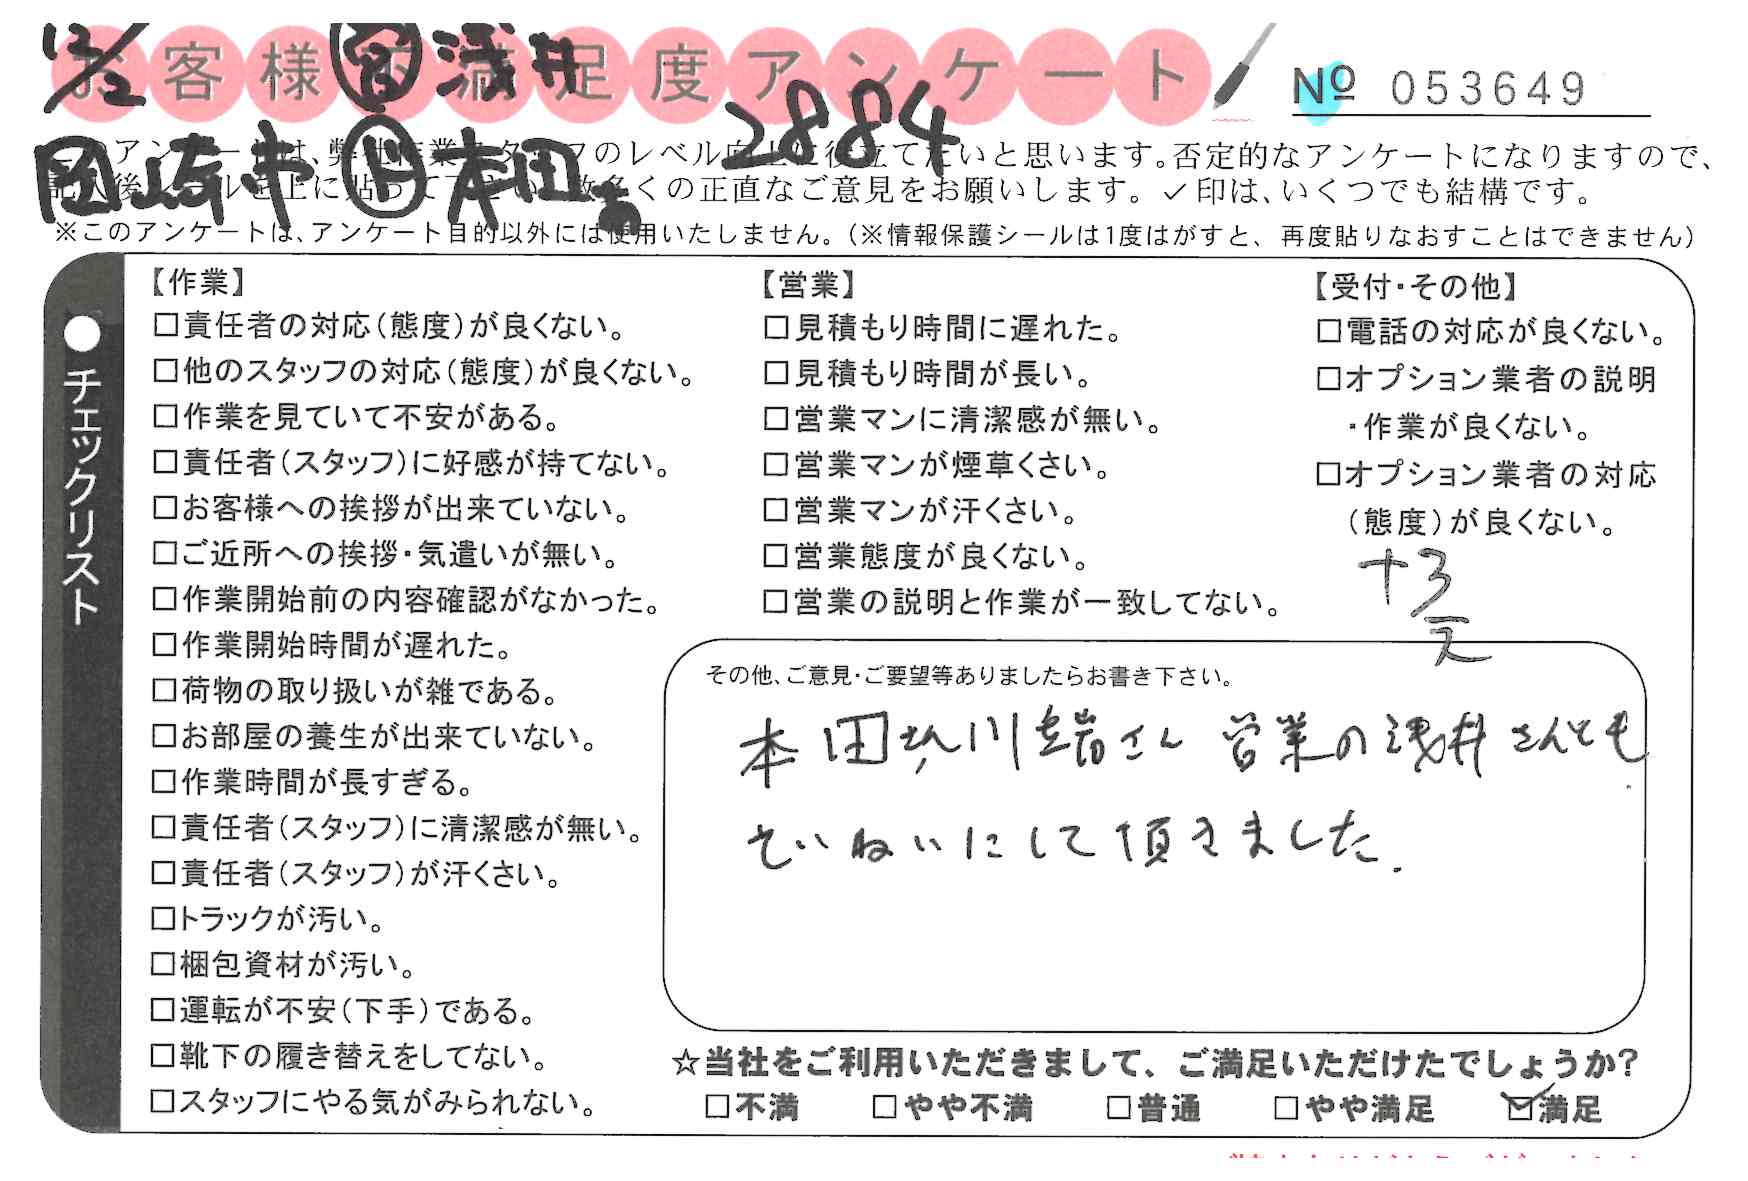 12/2 営 浅井
お客様の満足度アンケート
No 053649
2884
岡崎市 日 本田
このアンケートは、弊社作業スタッフのレベル向上に役立てたいと思います。否定的なアンケートになりますので、
記入後シールを上に貼って下さい。数多くの正直なご意見をお願いします。✓印は、いくつでも結構です。
※このアンケートは、アンケート目的以外には使用いたしません。(※情報保護シールは1度はがすと、再度貼りなおすことはできません)
●チェックリスト
【作業】
□責任者の対応(態度)が良くない。
□他のスタッフの対応(態度)が良くない。
□作業を見ていて不安がある。
□責任者(スタッフ)に好感が持てない。
□お客様への挨拶が出来ていない。
□ご近所への挨拶・気遣いが無い。
□作業開始前の内容確認がなかった。
□作業開始時間が遅れた。
□荷物の取り扱いが雑である。
□お部屋の養生が出来ていない。
□作業時間が長すぎる。
□責任者(スタッフ)に清潔感が無い。
□責任者(スタッフ)が汗くさい。
□トラックが汚い。
□梱包資材が汚い。
□運転が不安(下手)である。
□靴下の履き替えをしてない。
□スタッフにやる気がみられない。
【営業】
□見積もり時間に遅れた。
□見積もり時間が長い。
□営業マンに清潔感が無い。
□営業マンが煙草くさい。
□営業マンが汗くさい。
□営業態度が良くない。
□営業の説明と作業が一致してない。
【受付・その他】
□電話の対応が良くない。
□オプション業者の説明
・作業が良くない。
□オプション業者の対応
(態度)が良くない。
+3
その他、ご意見・ご要望等ありましたらお書き下さい。
本田さん川端さん 営業の浅井さんとも
ていねいにして頂きました.
☆当社をご利用いただきまして、ご満足いただけたでしょうか?
□不満 □やや不満 □普通 □やや満足 ☑満足